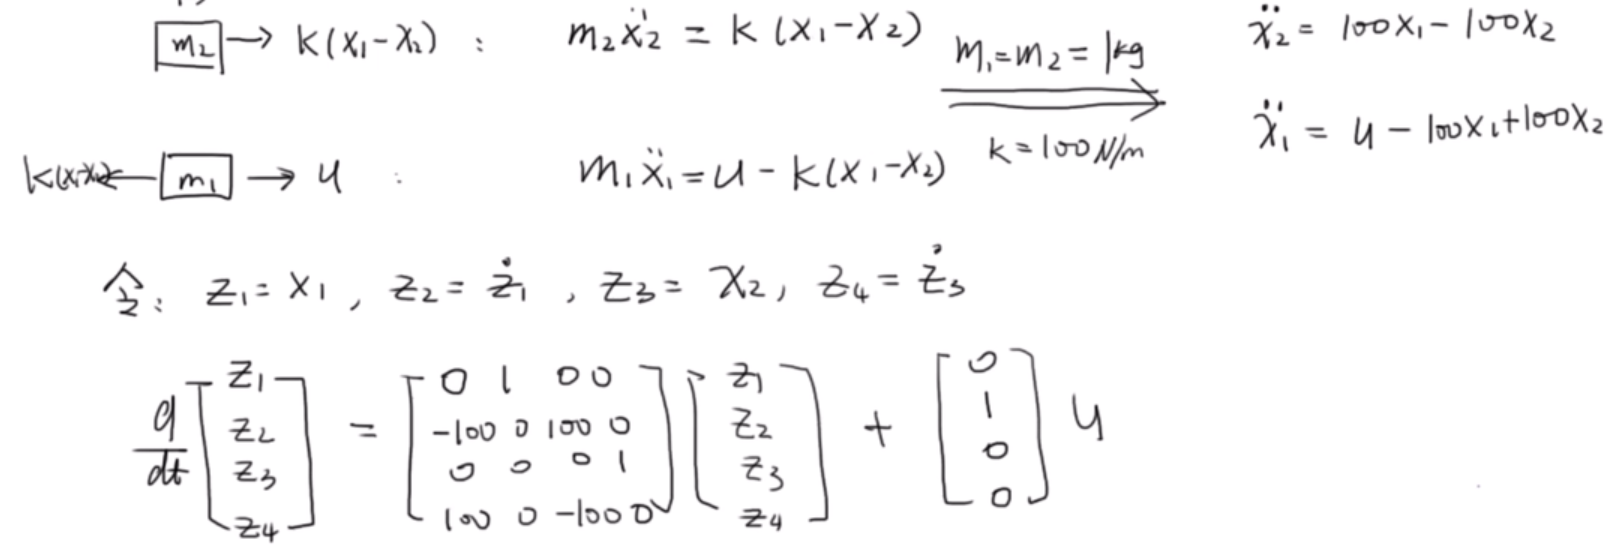 m₂ → k(x₁-x₂) : m₂ẍ₂ = k(x₁-x₂) m₁=m₂=1kg ẍ₂ = 100x₁-100x₂
k(x₁-x₂) ← m₁ → u : m₁ẍ₁=u-k(x₁-x₂) k=100N/m ẍ₁ = u-100x₁+100x₂
令: z₁=x₁, z₂=ż₁, z₃=x₂, z₄=ż₃
d/dt [z₁ z₂ z₃ z₄] = [0 1 0 0; -100 0 100 0; 0 0 0 1; 100 0 -100 0] [z₁ z₂ z₃ z₄] + [0 1 0 0] u